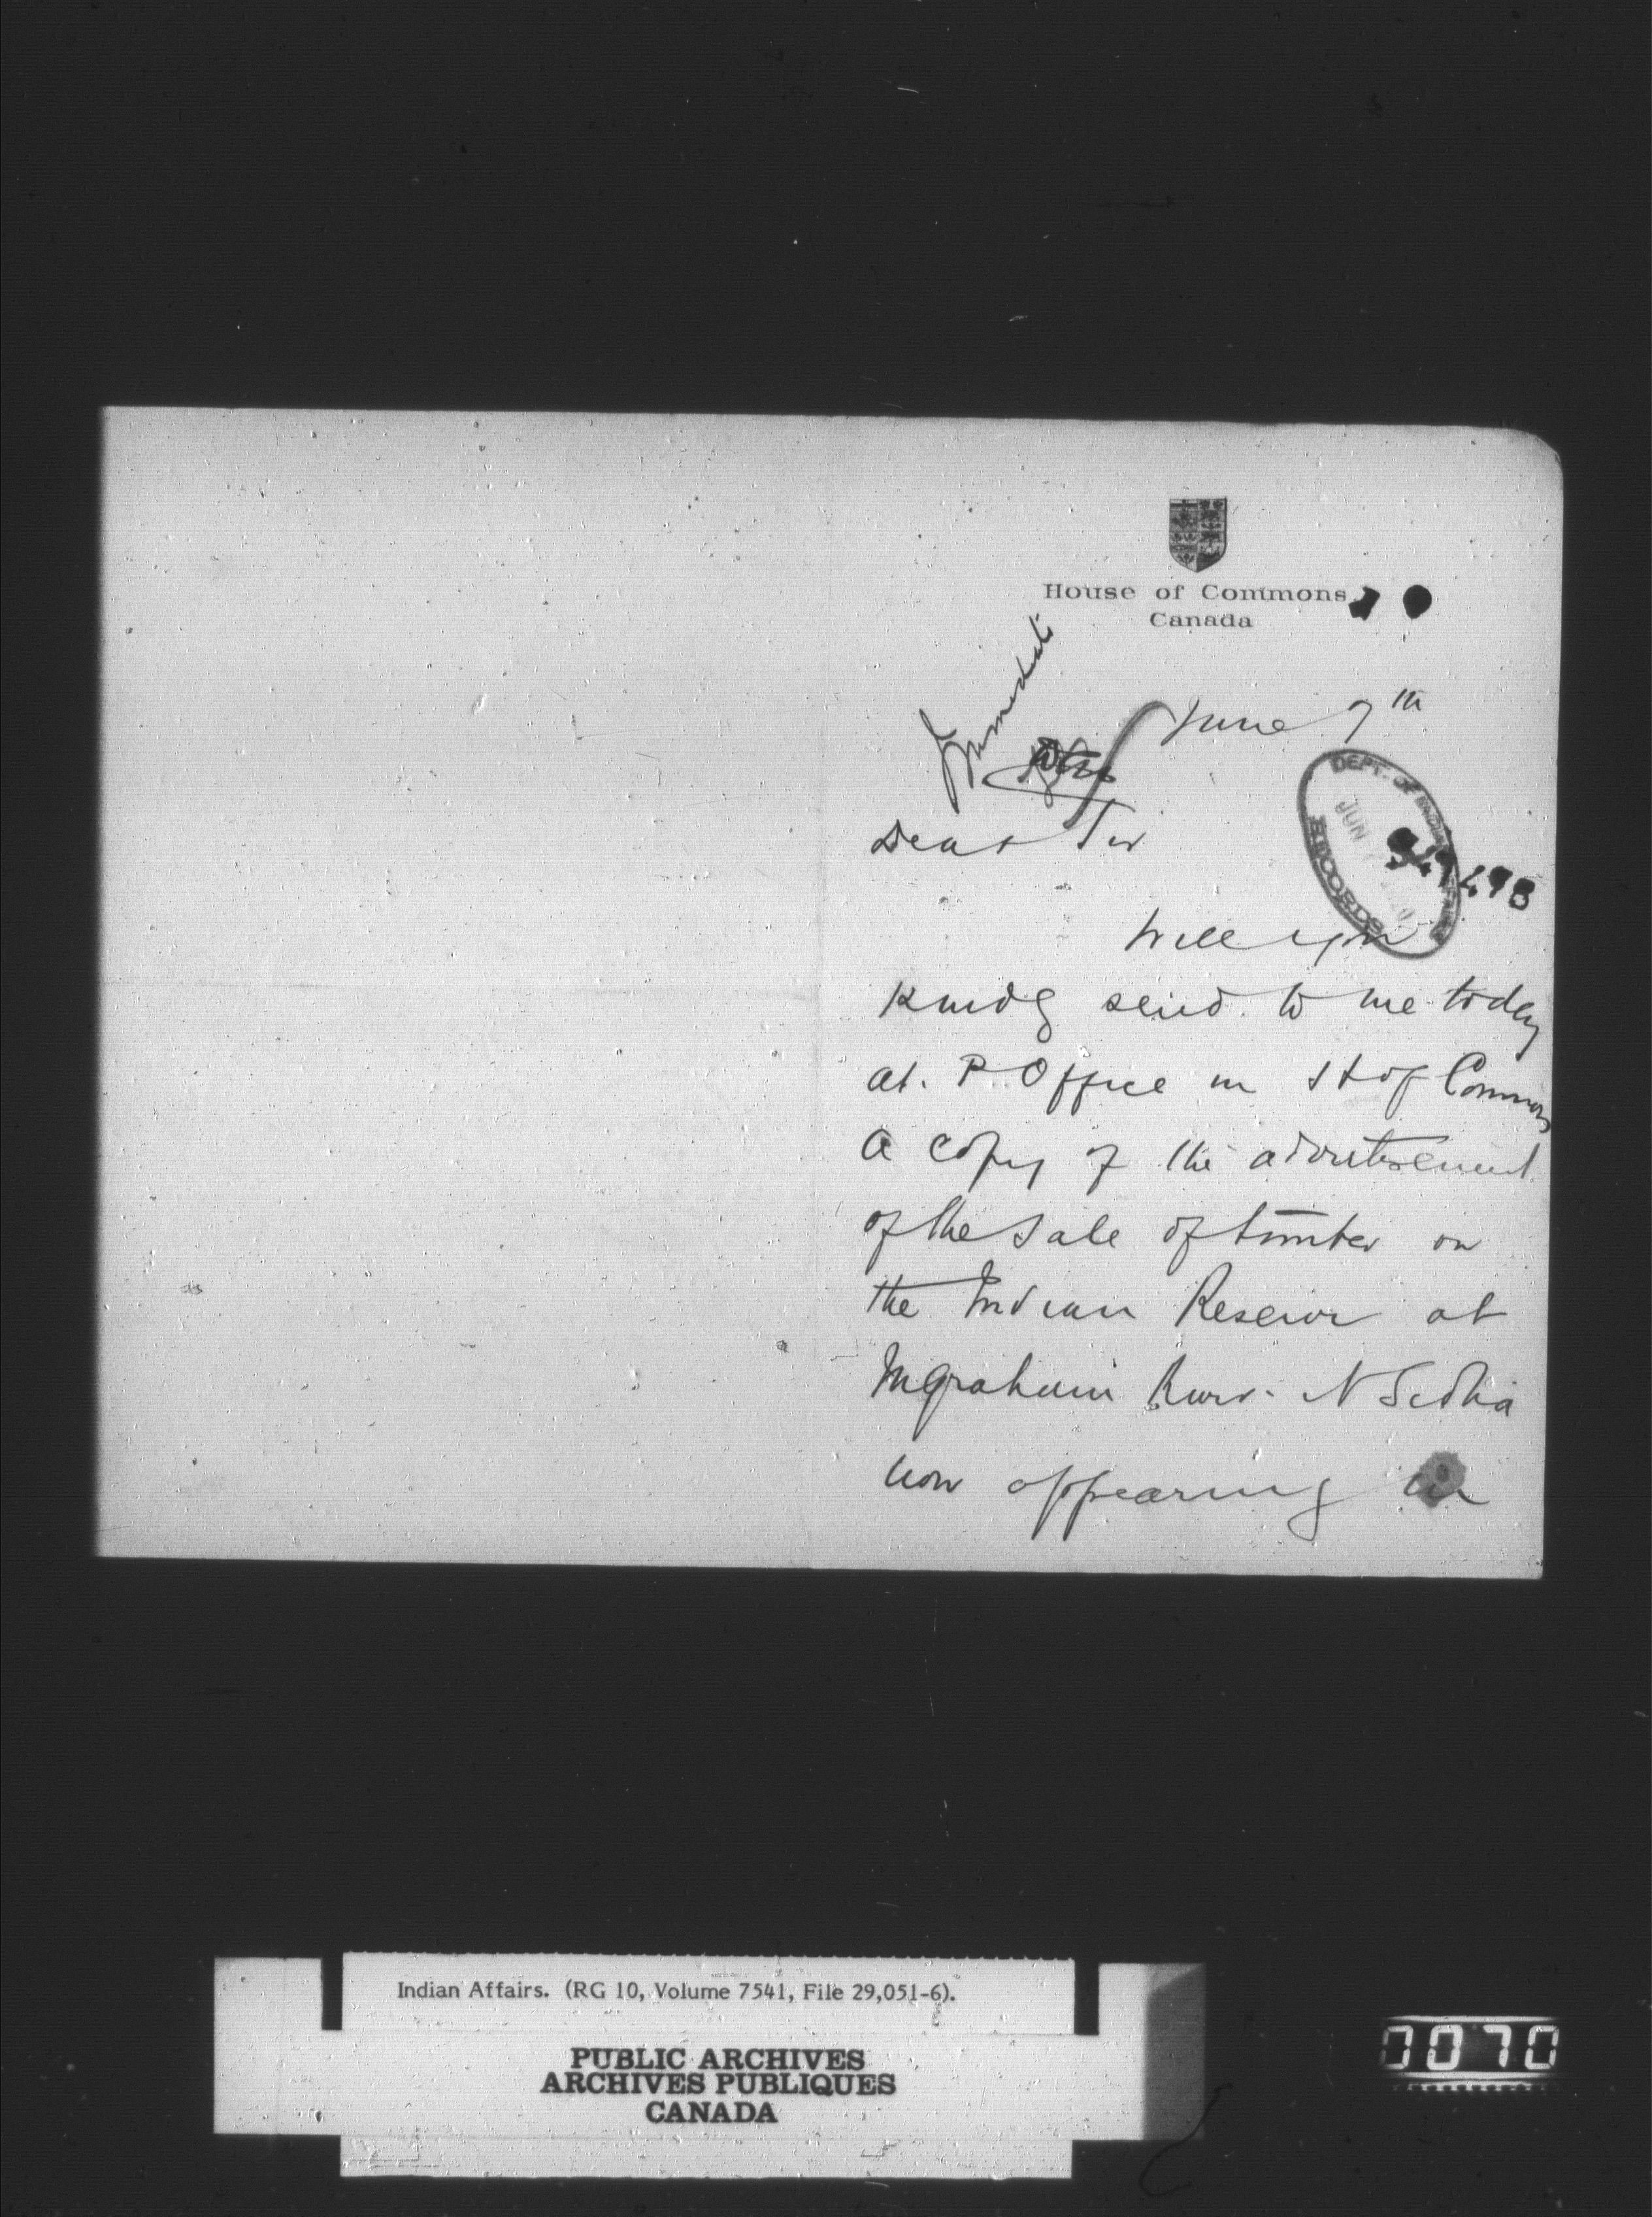 House of Commons
Canada
Immediate
June 7th
Dear Sir
DEPT. OF INDIAN AFFAIRS
JUN
RECORDS
349498
Will you
Kindly send to me today
at P Office in H of Commons
a copy of the advertisement
of the sale of timber on
the Indian Reserve at
Ingraham River N Scotia
now appearing in
Indian Affairs. (RG 10, Volume 7541, File 29,051-6).
PUBLIC ARCHIVES
ARCHIVES PUBLIQUES
CANADA
0070